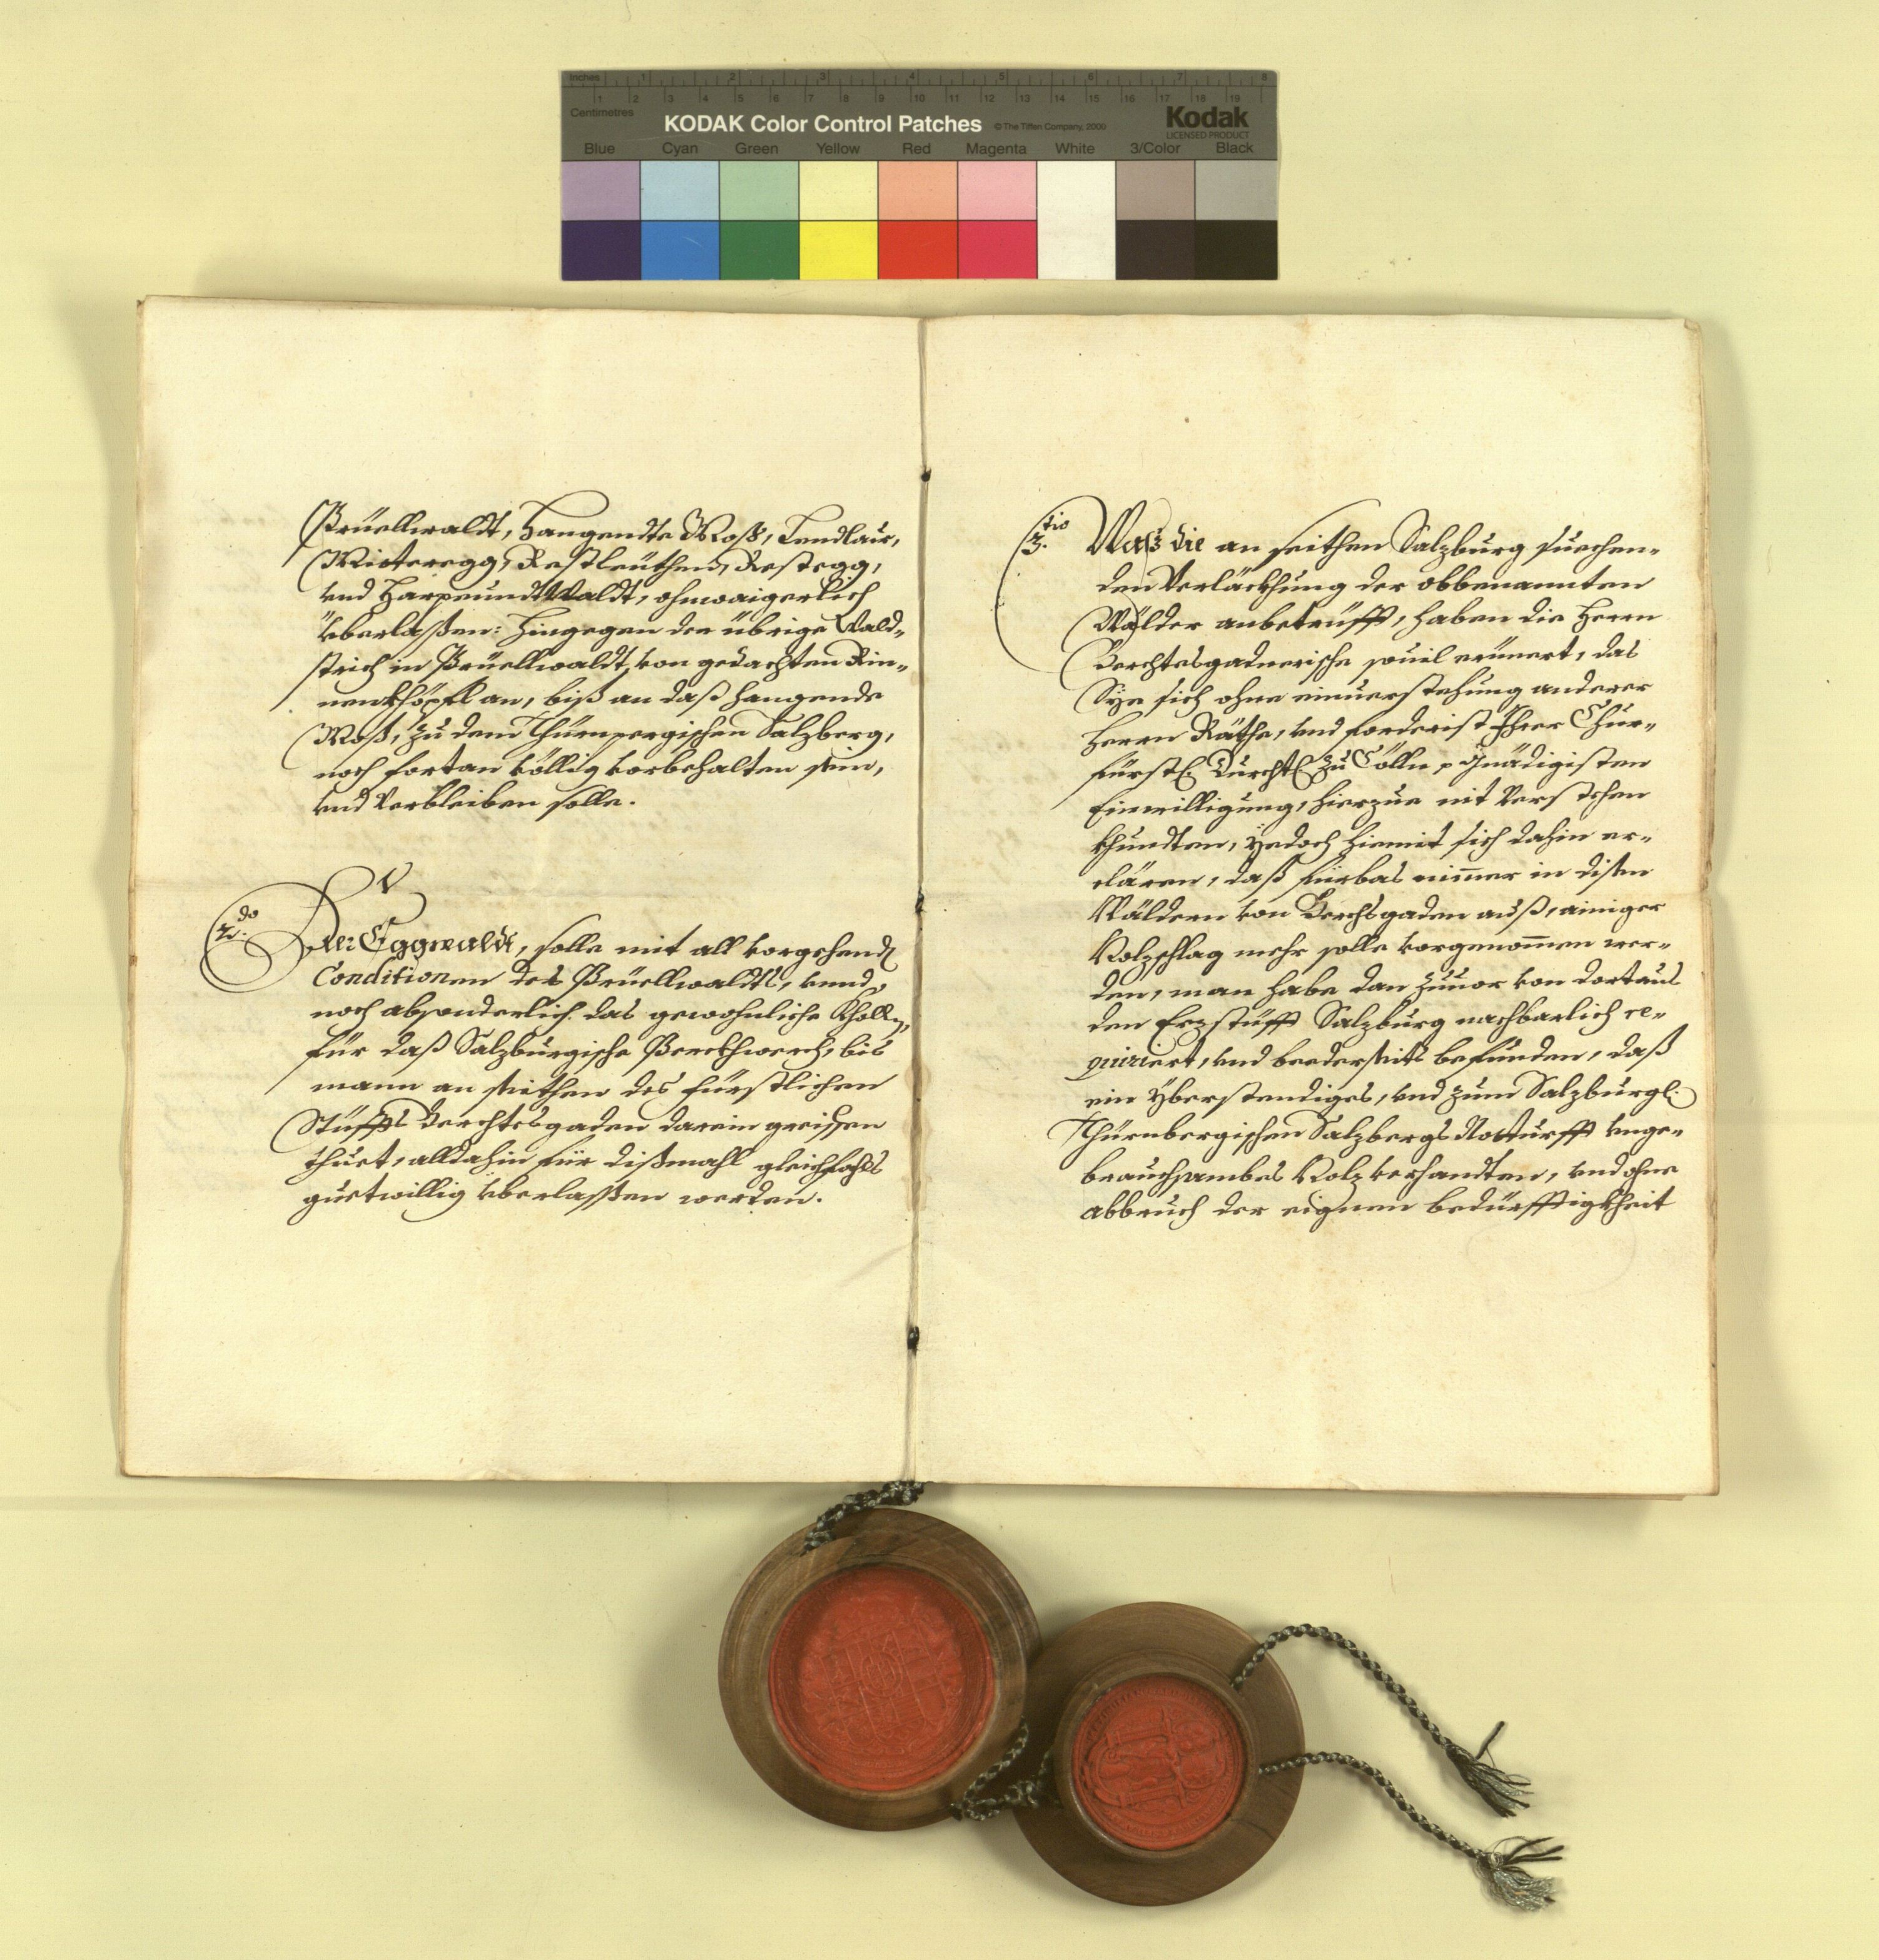 Inches 1 2 3 4 5 6 7 8
1 2 3 4 5 6 7 8 9 10 11 12 13 14 15 16 17 18 19
Centimetres
KODAK Color Control Patches © The Tiffen Company, 2000 Kodak
LICENSED PRODUCT
Blue Cyan Green Yellow Red Magenta White 3/Color Black
Prüellwaldt, Hangendte Moß, Lendlaur,
Mitteregg, Restleuthen, Restegg,
vnd HarpeundtWaldt, ohnwaigerlich
überlaßen: Hingegen der übrige Wald„
strich in Prüellwaldt, von gedachten Rin„
nenkhöpfl an, biß an daß Hangende
Moß, zu dem Thürnpergischen Salzberg,
noch fortan völlig vorbehalten sein,
vnd Verbleiben solle.
2.do Der Eggwaldt, solle mit all vorgehend
Conditionen des Prüellwaldts, vnnd
noch absonderlich das gewohnliche Kholln,
für daß Salzburgische Perckhwerch, bis
mann an seithen des fürstlichen
Stüffts Berchtesgaden darein greissen
thuet, alldahin für dißmahl gleichfahls
guetwillig überlassen werden.
3.tio Waß die an seithen Salzburg suechen„
den Verläckhung der obbenannten
Wälder anbetrüfft, haben die Herrn
Berchtesgadnerische souil erinnert, das
Sye sich ohne einuerstehung anderer
Herrn Räthe, vnd forderist Ihrer Chur„
fürstl. Durchl. zu Cölln p Gnädigisten
Einwilligung, hierzue nit Verstehen
khundten, Yedoch hiemit sich dahin er„
clären, daß fürbas nimmer in disen
Wäldern von Berchsgaden auß, ainiger
Holzschlag mehr solle vorgenommen wer„
den, man habe dan zuuor von dortaus
den Erzstüfft Salzburg nachbarlich re„
quiriert, vnd beederseits befunden, daß
ein yberstendiges, vnd zum Salzburgl.
Thürnbergischen Salzbergs Notturfft vnge„
brauchsambes Holz verhandten, vnd ohne
abbruch der eignen bedürfftigkheit